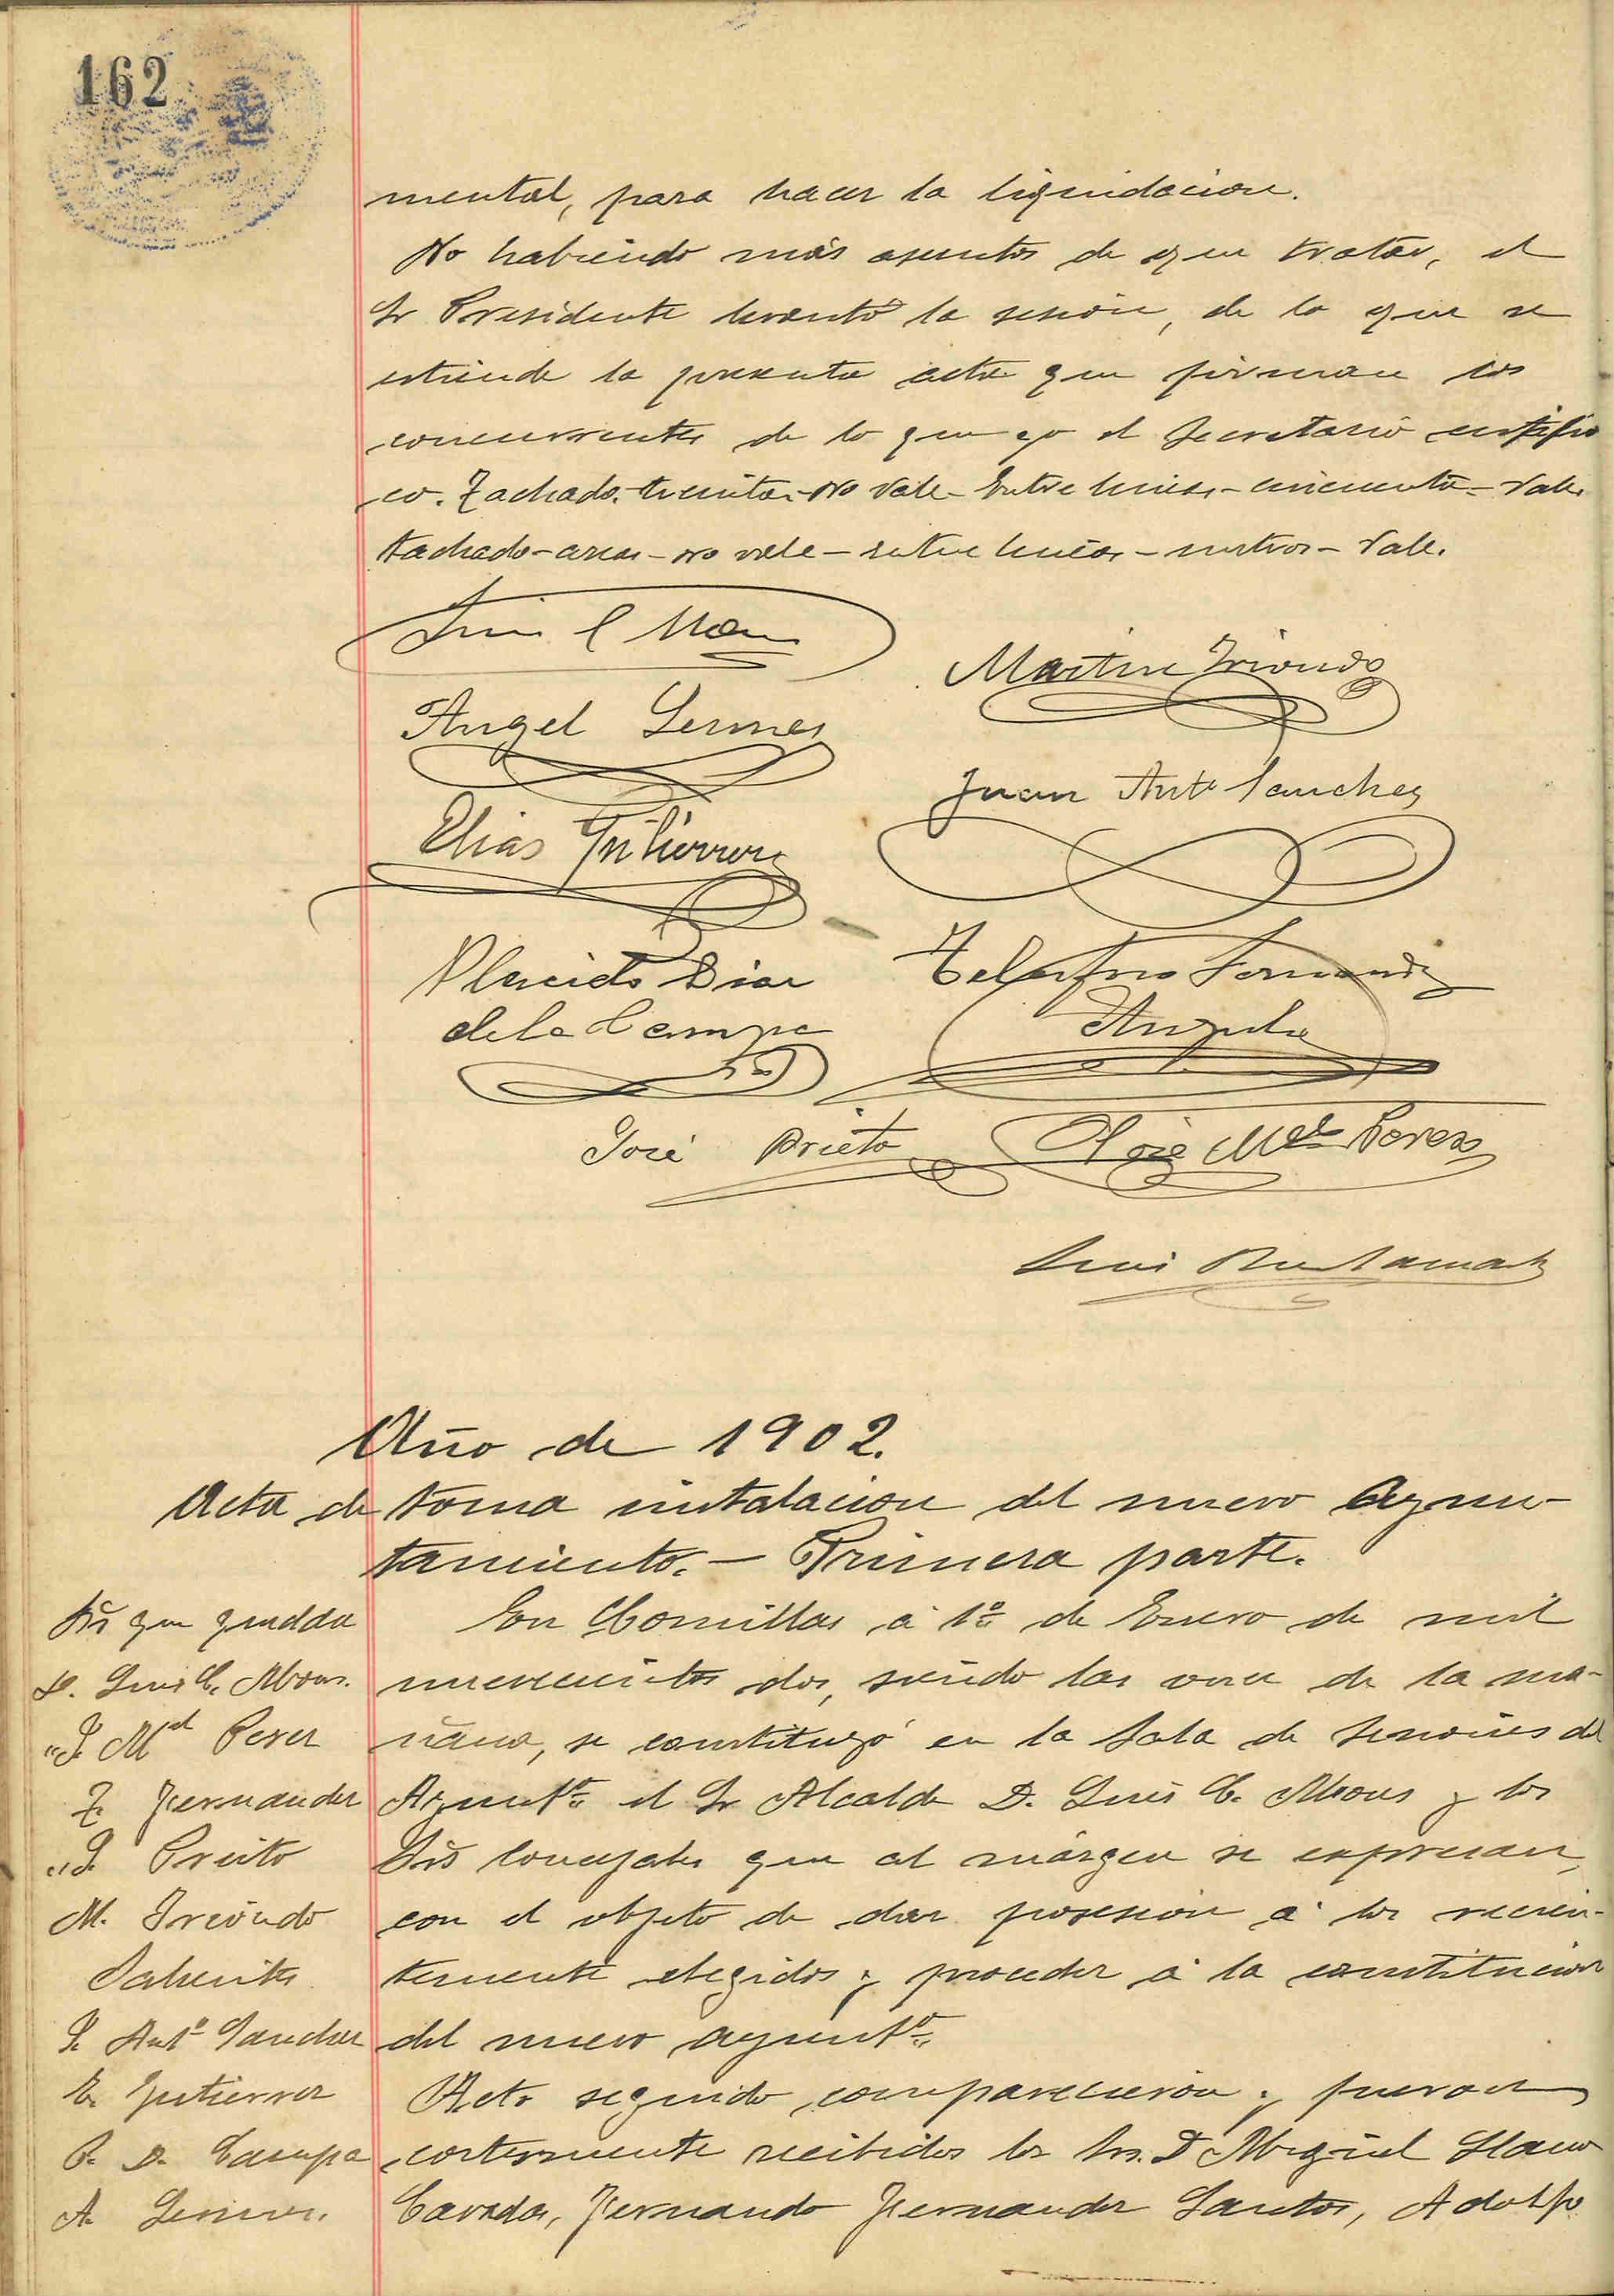 162
mental, para hacer la liquidacion.
No habiendo más asuntos de que tratar, el
Sr Presidente levantó la sesión, de lo que se
estiende la presente acta que firman los
concurrentes de lo que yo el Secretario certifi
co. Tachado. treinta - No Vale - Entre lineas - cincuenta - Vale
tachado - areas - no vale - entre lineas - metros - Vale.
Martin Yriondo
Angel
Juan Antº Sanchez
Elias Gutierrez
Placido Diaz
de la Campa
Telesforo Fernandez
José Prieto
José Mª Perez
Luis
Año de 1902.
Acta de toma instalacion del nuevo Ayun-
tamiento. - Primera parte.
Srs que quedan
D. Luis C. Mons.
" J. Mel Perez
T. Fernandez
" J. Prieto
M. Iriondo
Salientes
J. Antº Sanchez
E. Gutierrez
P. D. Campa
A.
En Comillas á 1º de Enero de mil
novecientos dos, siendo las once de la ma-
ñana, se constituyó en la Sala de Sesiones del
Ayuntº el Sr Alcalde D. Luis C. Mons y los
Srs Concejales que al márgen se expresan,
con el objeto de dar posesion á los recien-
temente elegidos y proceder á la constitucion
del nuevo ayuntº.
Acto seguido comparecieron y fueron
cortesmente recibidos los Srs. D Miguel Llano
Fernando Fernandez Santos, Adolfo